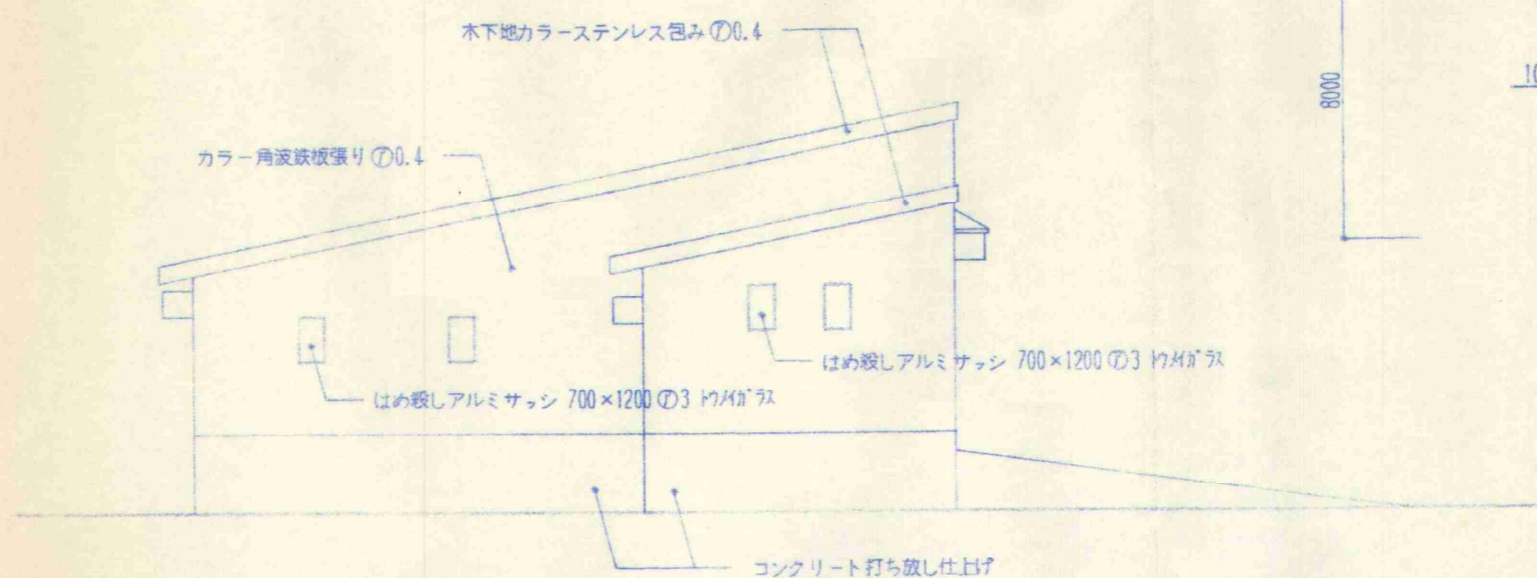 木下地カラーステンレス包み ⑦0.4
カラー角波鉄板張り ⑦0.4
8000
10
はめ殺しアルミサッシ 700×1200 ⑦3 トウメイガラス
はめ殺しアルミサッシ 700×1200 ⑦3 トウメイガラス
コンクリート打ち放し仕上げ